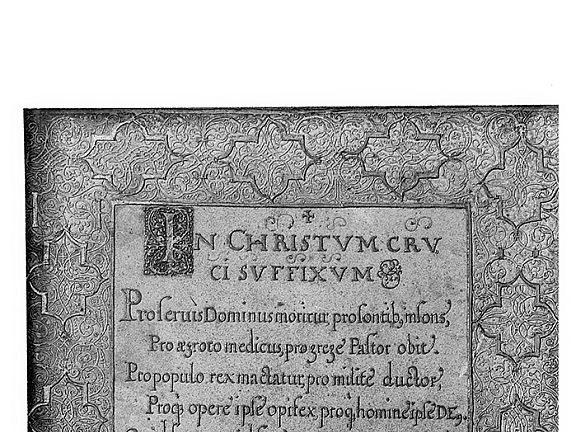 IN CHRISTVM CRV
CI SVFFIXVM
Pro seruis Dominus moritur, pro sontib₉ insons,
Pro ægroto medicus, pro grege Pastor obit.
Pro populo rex mactatur, pro milite ductor,
Proq₃ opere ipse opifex, proq₃ homine ipse DE₉.